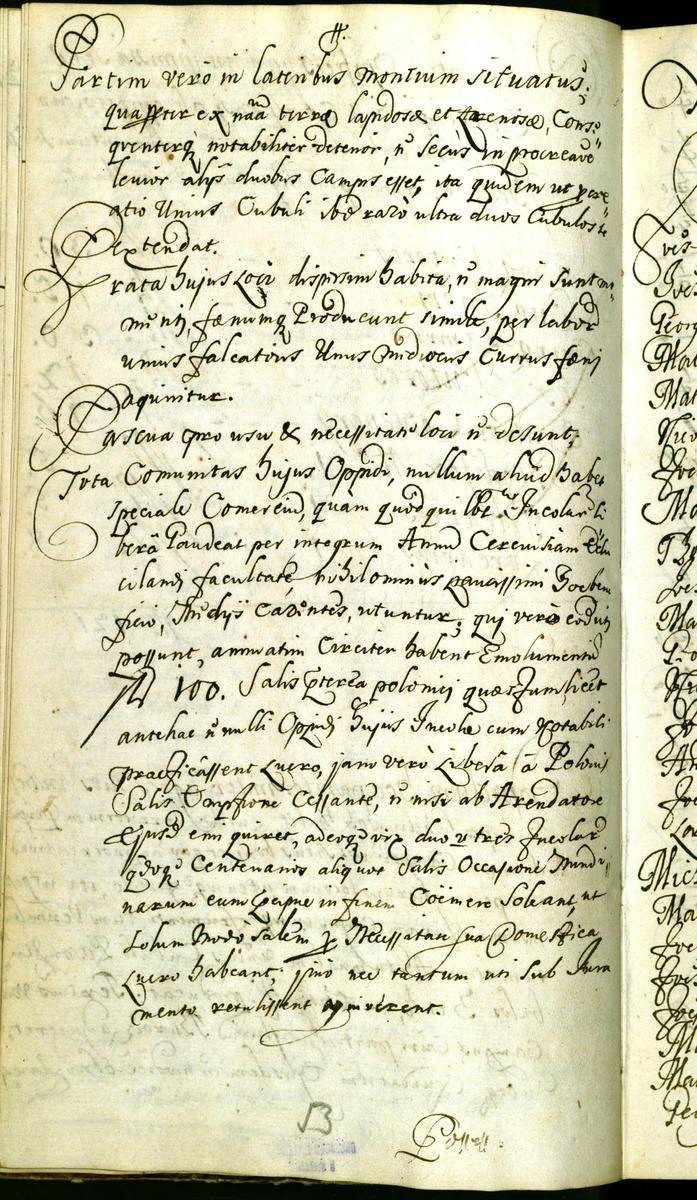 Partim verò in lateribus Montium situatus,
quapter ex nãa terræ lapidosæ et Arenosæ, Conse
quenterq notabiliter deterior, ñ secùs in procreãe
levior alijs duobus Campis esset, ita quidem ut
atio Unius Cubuli ibd rarò ultra duos Cubulos
extendat.
Prata hujus Loci dispersim habita, ñ magni sunt
fænumq Producunt simile, per labor
unius falcatoris Unus Mediocris Currus fæni
aquiritur.
Pascua pro usu & necessitate loci ñ desunt,
Tota Comunitas hujus Oppidi, nullum aliud habet
speciale Comerciũ, quam quòd quilbt Incolar li
berâ Gaudeat per integrum Annũ Cerevisiam Edu
cilandi facultate, nihilominùs paucissimi hoc ben
ficio, Medijs Carentes, utuntur, qui verò
possunt, annuatim Circiter habent Emolumentũ
100. Salis Pterea polonici quæstum, licet
antehac ñ nulli Oppidi hujus Incolæ cum Notabili
præficâssent Lucro, jam verò Liberâ à Polonis
Salis Empsione Cessante, ñ nisi ab Arendatore
Ejusd emi quiret, adeoq vix duo ve tres Incolar
Centenarios aliquot Salis Occasione Nundi
narum eum in finem Coëmere Soleant, ut
solum Modo Salem p Necessitate sua Domestica
Lucro habeant, imo nec tantum uti sub Jura
mento retulissent aquirerent.
53
Possess: